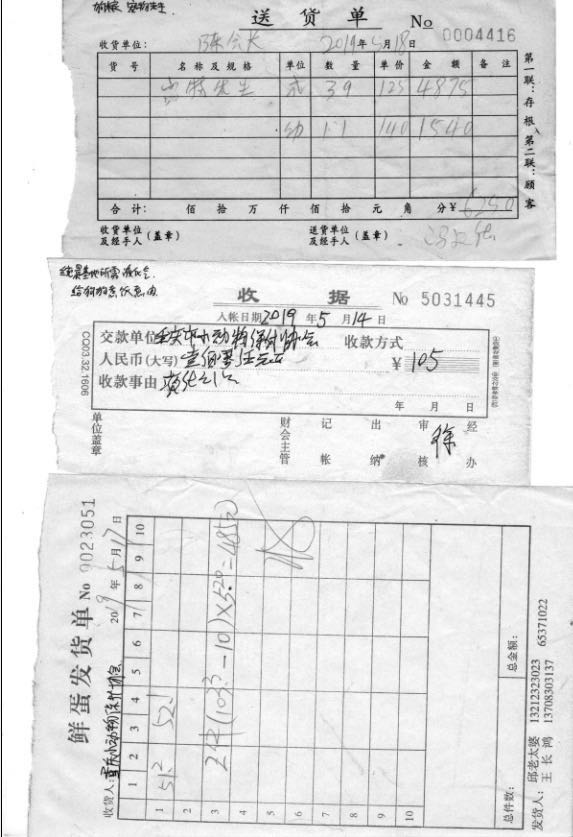 送货单 No 0004416
收货单位: 陈会长 2019年5月18日
货号 名称及规格 单位 数量 单价 金额 备注
先生 成 39 125 4875
幼 11 140 1540
合计: 佰 拾 万 仟 佰 拾 元 角 分¥
收货单位及经手人(盖章) 送货单位及经手人(盖章)
第一联:存根 第二联:顾客
收据 No 5031445
入帐日期2019年5月14日
交款单位重庆市小动物保护协会 收款方式
人民币(大写)壹佰零伍元正 ¥105
收款事由
年 月 日
单位盖章 财会主管 记帐 出纳 审核 徐 经办
CQ03.32.1606
鲜蛋发货单 No 0023051
收货人:重庆小动物保护协会 2019年5月17日
1 2 3 4 5 6 7 8 9 10
1 51.2 52.1
2
3 2件(103.3-10)×5.20=485.00
4
5
6
7
8
9
10
总件数: 总金额:
邱老太婆 13212323023 65371022
发货人: 王长鸿 13708303137